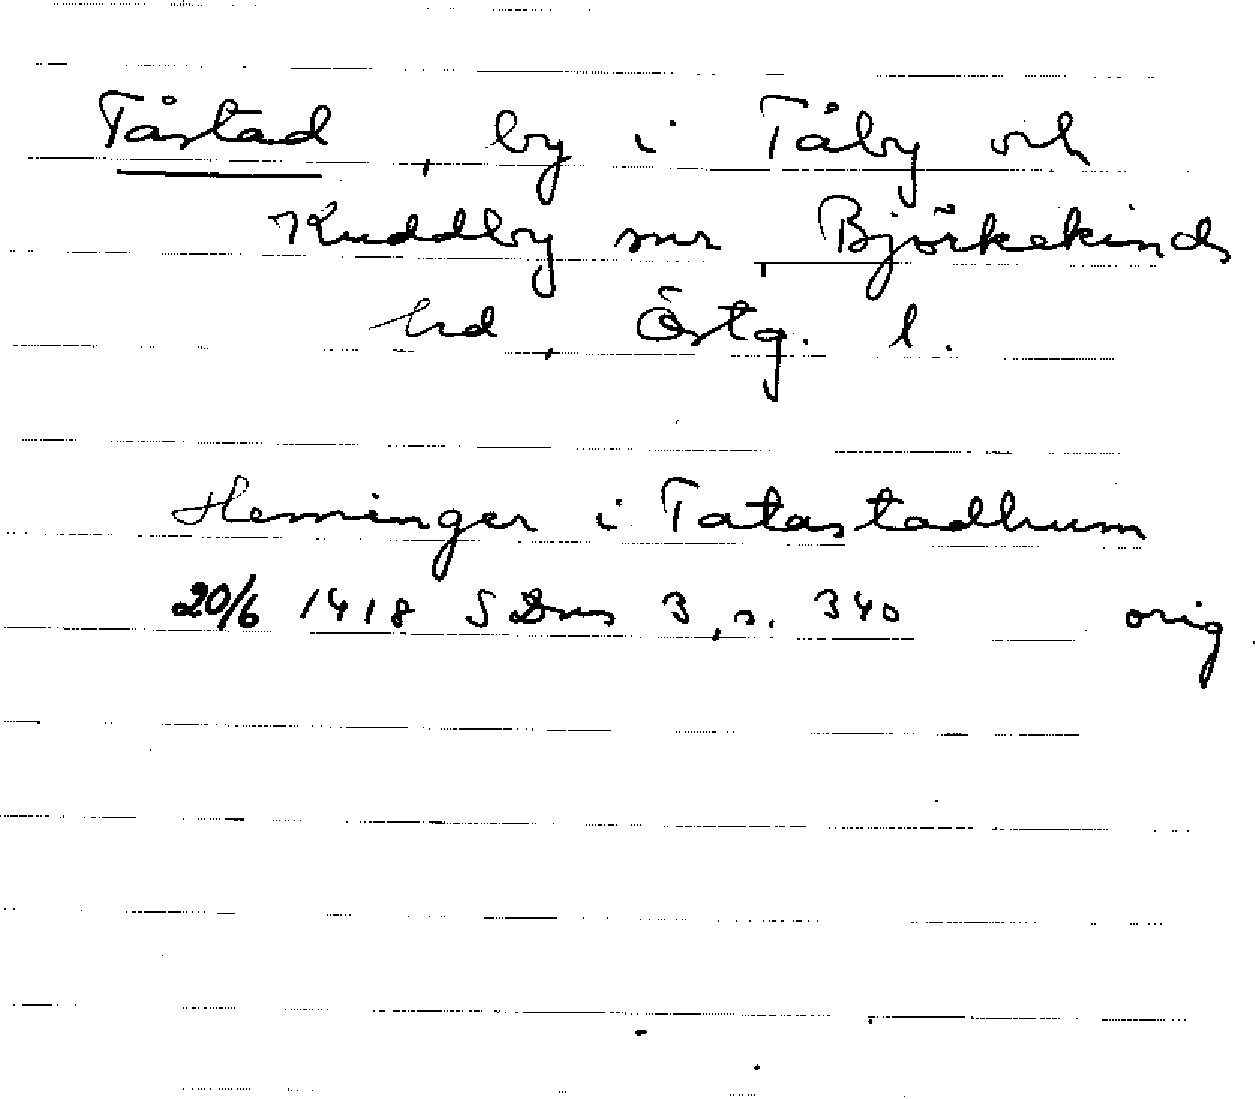 Tåstad, by i Tåby och
Kuddby snr, Björkekinds
hd, Östg. l.
Heminger i Tatastadhum
20/6 1418 SDns 3, s. 340 orig.